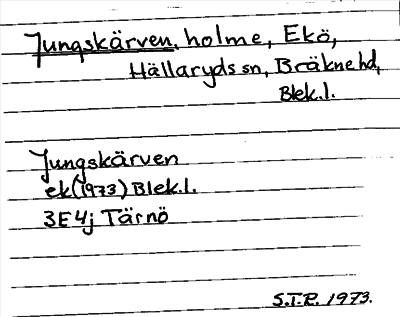 Jungskärven, holme, Ekö,
Hällaryds sn, Bräkne hd,
Blek.l.
Jungskärven
ek (1973) Blek.l.
3E4j Tärnö
S.T.R. 1973.